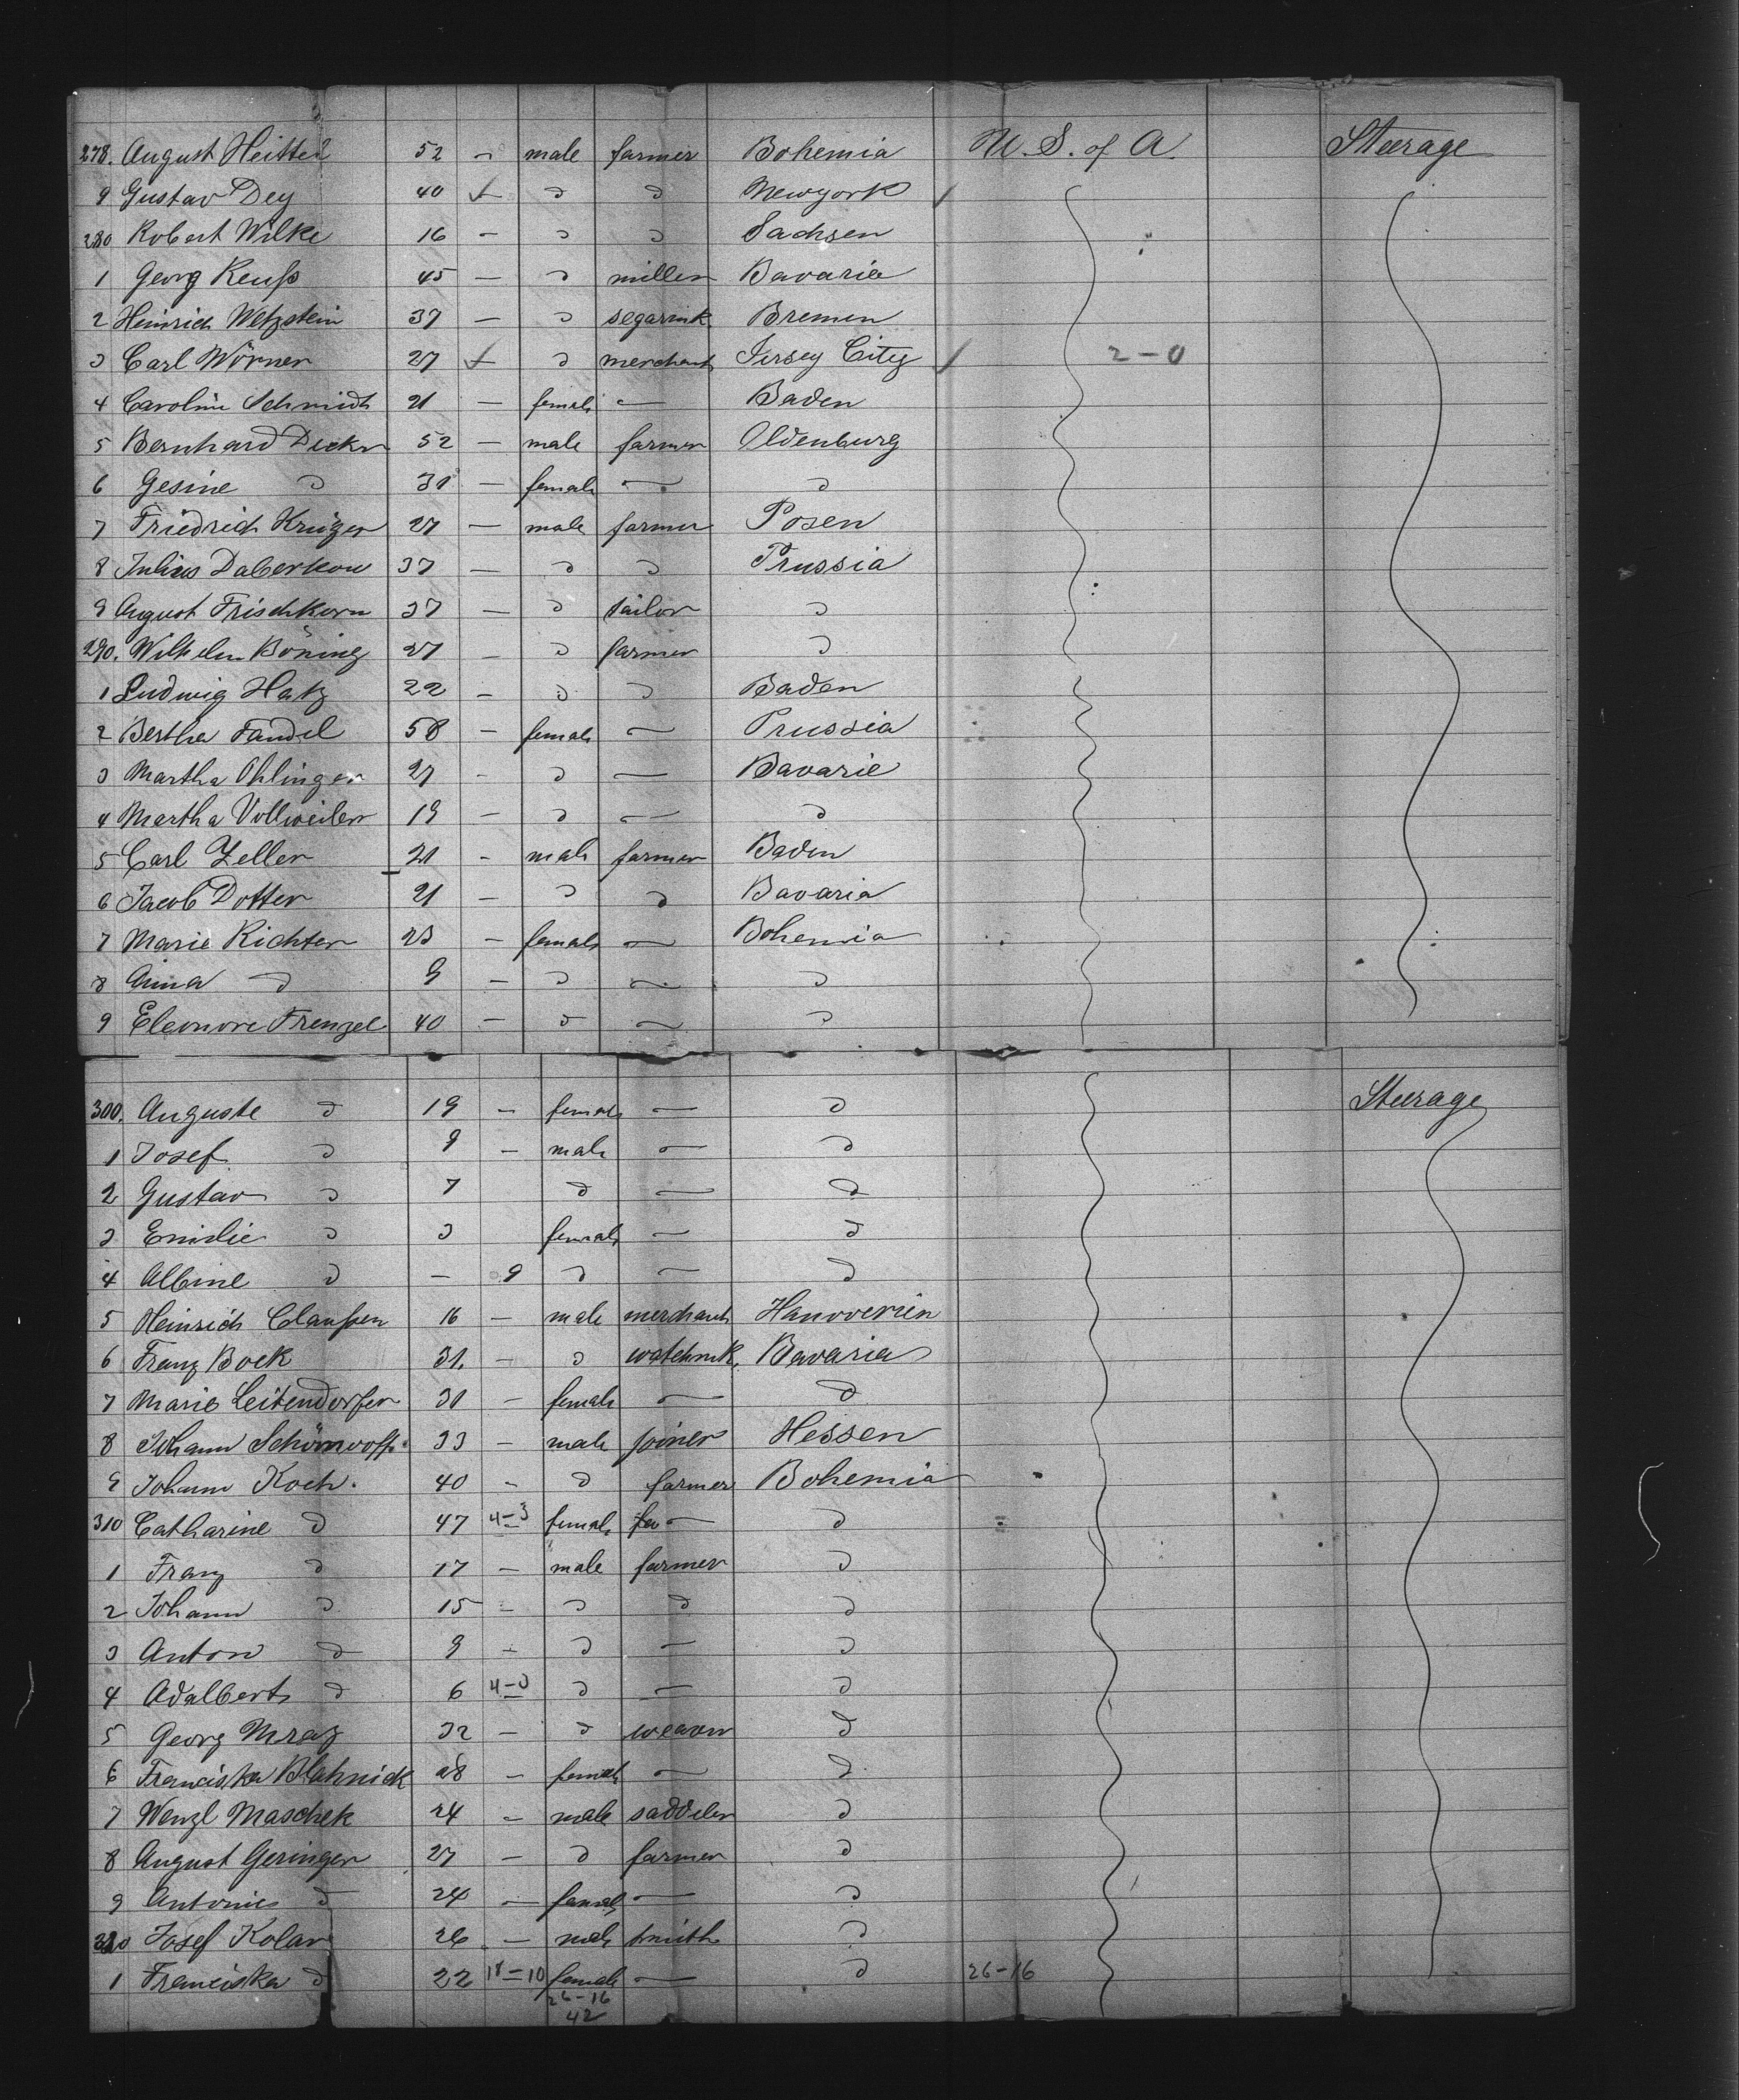 278. August Heitter 52 – male farmer Bohemia U. S. of A. Steerage
9 Gustav Dey 40 do do Newyork
280 Robert Wilke 16 – do do Sachsen
1 Georg Reuß 45 – do miller Bavaria
2 Heinrich Wetzstein 37 – do segarmk. Bremen
3 Carl Wörner 27 do merchant Jersey City 2–0
4 Caroline Schmidt 21 – female – Baden
5 Bernhard Decker 52 – male farmer Oldenburg
6 Gesine do 31 – female – do
7 Friedrich Krüger 27 – male farmer Posen
8 Julius Daberkow 37 – do do Prussia
9 August Frischkorn 37 – do tailor do
290. Wilhelm Böning 27 – do farmer do
1 Ludwig Hatz 22 – do do Baden
2 Bertha Fandel 58 – female – Prussia
3 Martha Ohlinger 27 – do – Bavaria
4 Martha Vollweiler 19 – do – do
5 Carl Zeller 21 – male farmer Baden
6 Jacob Dotter 21 – do do Bavaria
7 Marie Richter 23 – female – Bohemia
8 Anna do 9 – do – do
9 Eleonore Frenzel 40 – do – do
300. Auguste do 19 – female – do Steerage
1 Josef do 9 – male – do
2 Gustav do 7 do – do
3 Emilie do 3 female – do
4 Albine do – 9 do – do
5 Heinrich Claußen 16 – male merchant Hannoverien
6 Franz Bock 31. – do watchmk. Bavaria
7 Marie Leitendorfer 31 – female – do
8 Johann 33 – male joiner Hessen
9 Johann Koch. 40 – do farmer Bohemia
310 Catharine do 47 4–3 female – do
1 Franz do 17 – male farmer do
2 Johann do 15 – do do do
3 Anton do 9 – do – do
4 Adalbert do 6 4–0 do – do
5 Georg Mraz 32 – do weaver do
6 Franciska Blahnick 28 – female – do
7 Wenzl Maschek 24 – male saddeler do
8 August Geringer 27 – do farmer do
9 Antonie do 24 – female – do
320 Josef Kolar 26 – male smith do
1 Franciska do 22 18–10 female – do 26–16
26–16
42